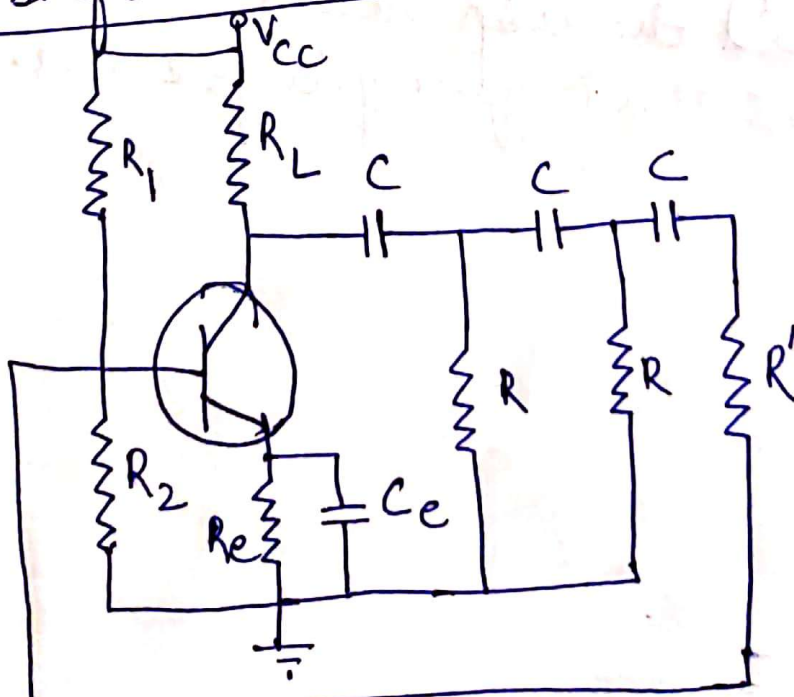 V_CC
R_1
R_L
C
C
C
R
R
R'
R_2
R_e
C_e